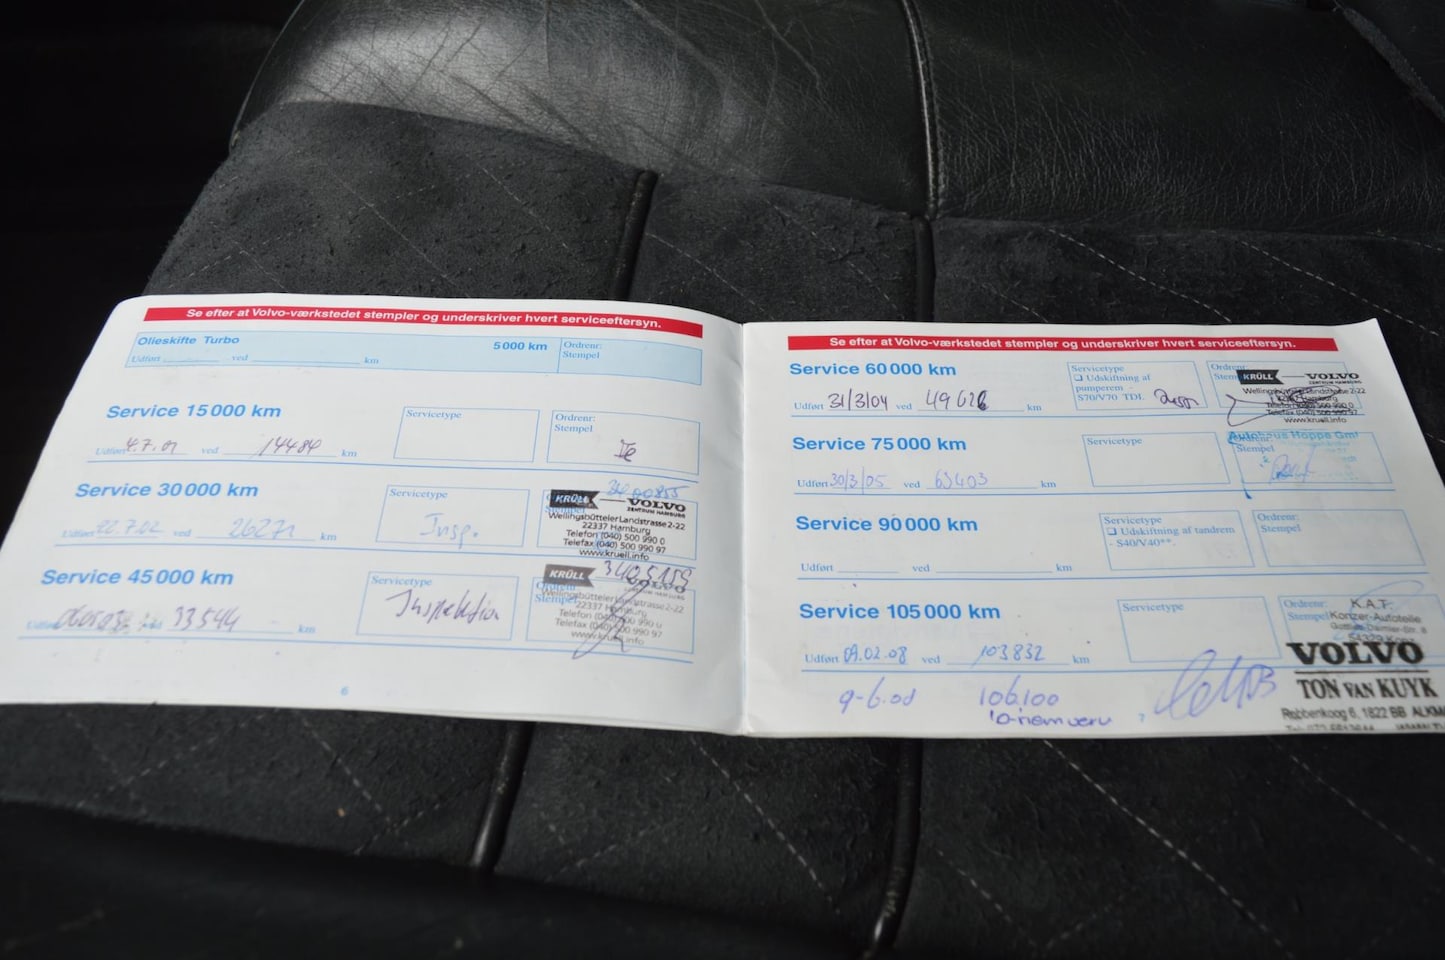 Se efter at Volvo-værkstedet stempler og underskriver hvert serviceeftersyn.
Olieskifte Turbo 5000 km
Ordrenr:
Stempel
Udført ved km
Service 15 000 km
Servicetype
Ordrenr:
Stempel
Udført 4.7.01 ved 14484 km
Service 30 000 km
Servicetype
Insp.
KRÜLL VOLVO
ZENTRUM HAMBURG
Wellingsbütteler Landstrasse 2-22
22337 Hamburg
Telefon (040) 500 990 0
Telefax (040) 500 990 97
www.kruell.info
Udført 22.7.02 ved 26271 km
Service 45 000 km
Servicetype
Inspektion
Ordrenr:
Stempel
KRÜLL 3405159
VOLVO
Wellingsbütteler Landstrasse 2-22
22337 Hamburg
Telefon (040) 500 990 0
Telefax (040) 500 990 97
www.kruell.info
Udført ved 33544 km
6
Se efter at Volvo-værkstedet stempler og underskriver hvert serviceeftersyn.
Service 60 000 km
Servicetype
Udskiftning af
pumperem -
S70/V70 TDI.
Ordrenr:
Stempel
KRÜLL VOLVO
ZENTRUM HAMBURG
Hamburg
Telefax (040) 500 990 97
www.kruell.info
Udført 31/3/04 ved km
Service 75 000 km
Servicetype
Autohaus Hoppe GmbH
Stempel
Udført 30/3/05 ved 63403 km
Service 90 000 km
Servicetype
Udskiftning af tandrem
- S40/V40**.
Ordrenr:
Stempel
Udført ved km
Service 105 000 km
Servicetype
Ordrenr:
Stempel
K.A.T.
Konzer-Autoteile
Gottlieb-Daimler-Str. 8
54329 Konz
Udført 09.02.08 ved 103832 km
9-6.08 106,100
VOLVO
TON VAN KUYK
Robbenkoog 6, 1822 BB ALKM
7